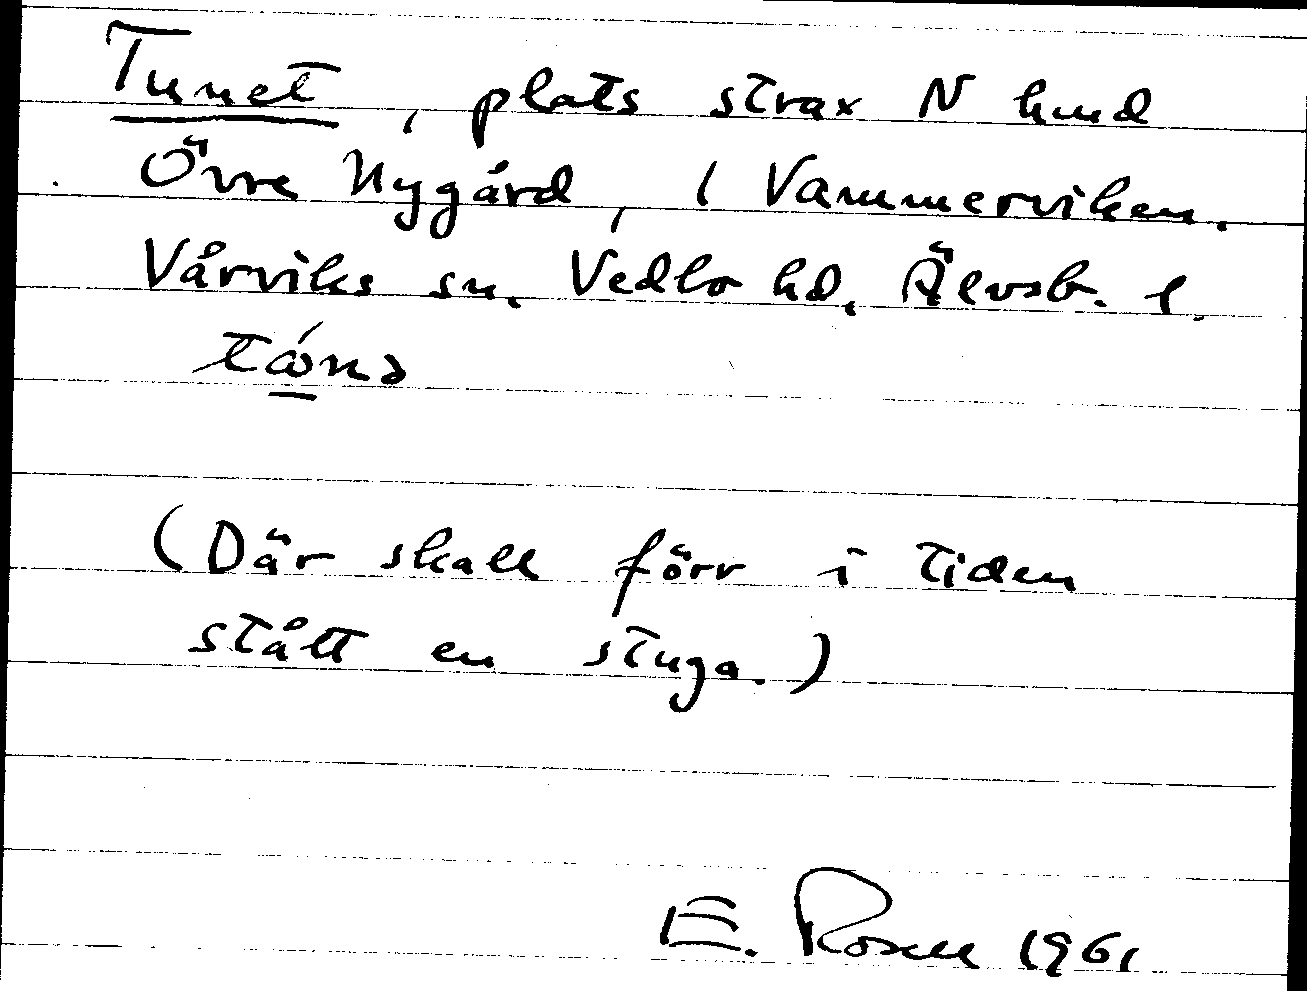 Tunet, plats strax N hmd
Övre Nygård, i Vammerviken.
Vårviks sn. Vedbo hd. Älvsb. l.
(Där skall förr i tiden
stått en stuga.)
E. Rosell 1961